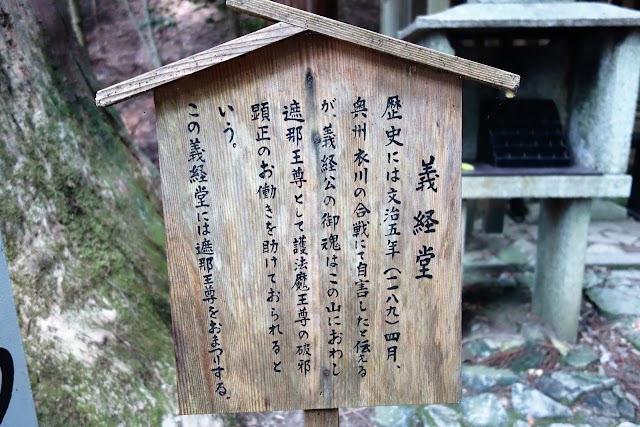 義経堂
歴史には文治五年（一一八九）四月、
奥州 衣川の合戦にて自害したと伝える
が、義経公の御魂はこの山におわし
遮那王尊として護法魔王尊の破邪
顕正のお働きを助けておられると
いう。
この義経堂には遮那王尊をおまつりする。